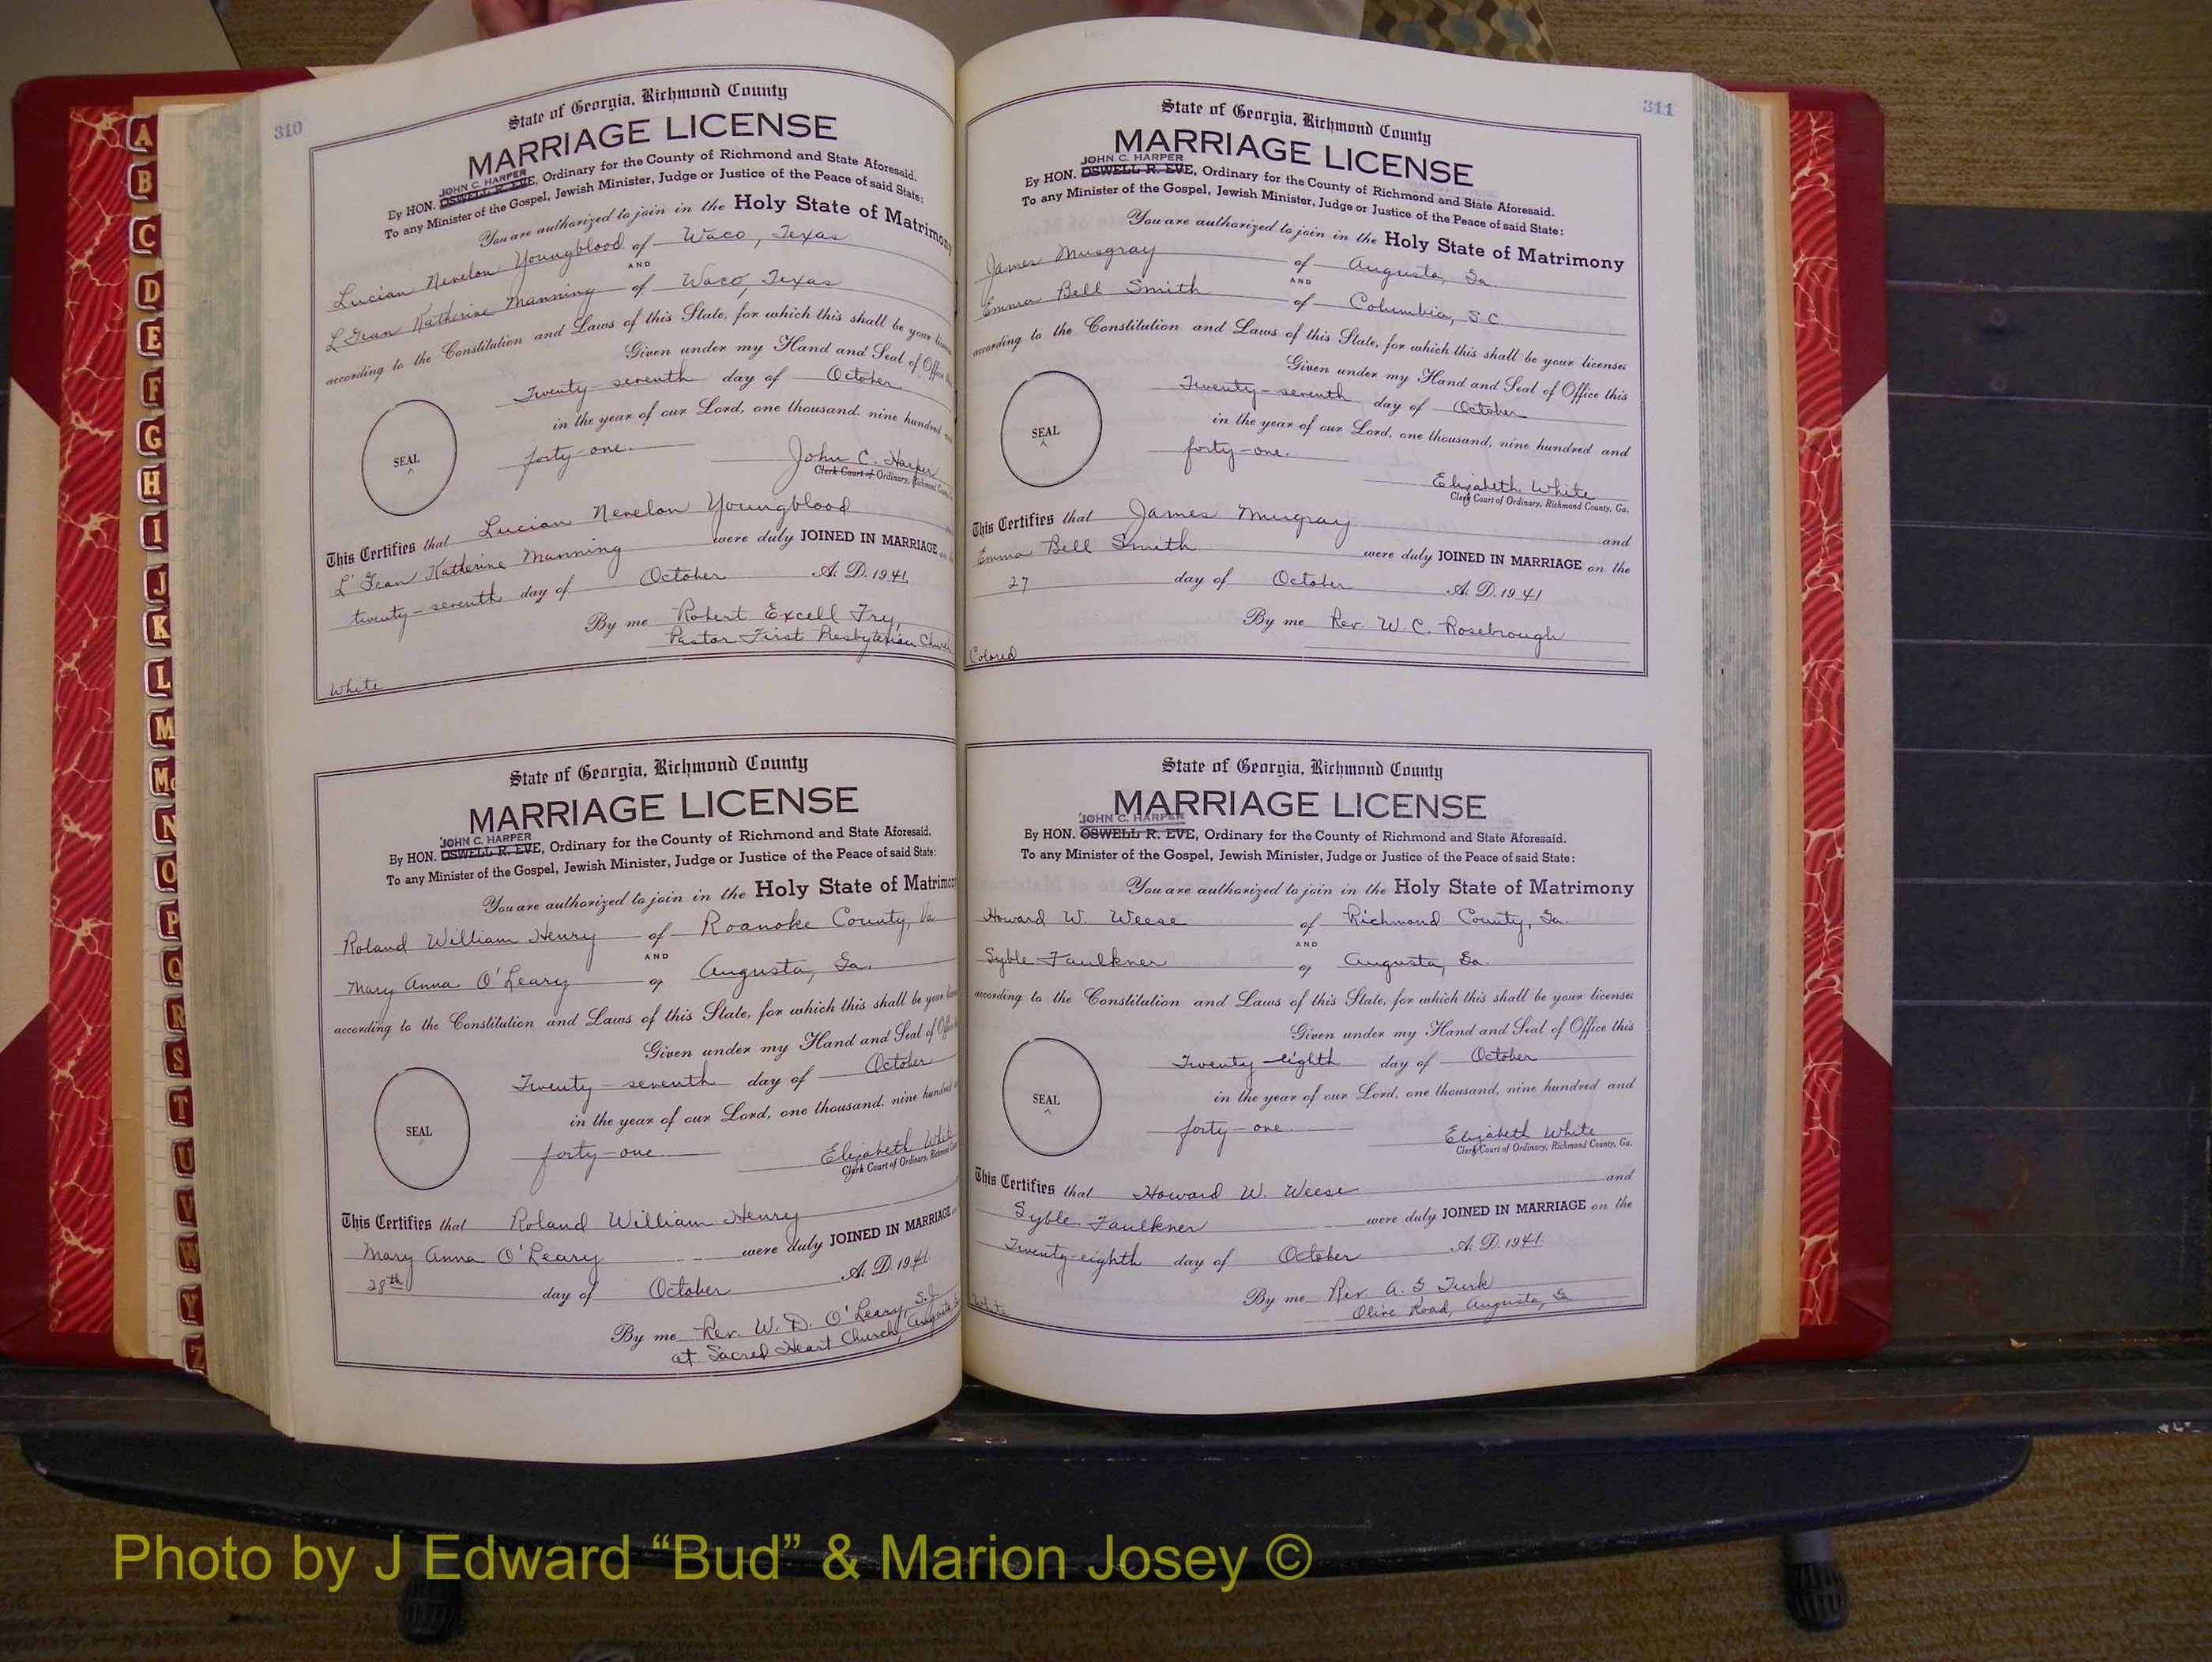 310
State of Georgia, Richmond County
MARRIAGE LICENSE
JOHN C. HARPER
By HON. OSWELL R. EVE, Ordinary for the County of Richmond and State Aforesaid.
To any Minister of the Gospel, Jewish Minister, Judge or Justice of the Peace of said State:
You are authorized to join in the Holy State of Matrimony
Lucian Nevelon Youngblood of Waco, Texas
AND
L'Jean Katherine Manning of Waco, Texas
according to the Constitution and Laws of this State, for which this shall be your
Given under my Hand and Seal of Office
Twenty-seventh day of October
in the year of our Lord, one thousand, nine hundred
forty-one.
SEAL
John C. Harper
Clerk Court of Ordinary, Richmond
This Certifies that Lucian Nevelon Youngblood
L'Jean Katherine Manning were duly JOINED IN MARRIAGE
twenty-seventh day of October A. D. 1941.
By me Robert Excell Fry,
Pastor First Presbyterian Church
White
State of Georgia, Richmond County
MARRIAGE LICENSE
JOHN C. HARPER
By HON. OSWELL R. EVE, Ordinary for the County of Richmond and State Aforesaid.
To any Minister of the Gospel, Jewish Minister, Judge or Justice of the Peace of said State:
You are authorized to join in the Holy State of Matrimony
Roland William Henry of Roanoke County, Va
AND
Mary Anna O'Leary of Augusta, Ga.
according to the Constitution and Laws of this State, for which this shall be your
Given under my Hand and Seal of
Twenty-seventh day of October
in the year of our Lord, one thousand, nine hundred
forty-one.
SEAL
Elizabeth White
Clerk Court of Ordinary, Richmond
This Certifies that Roland William Henry
Mary Anna O'Leary were duly JOINED IN MARRIAGE
28th day of October A. D. 1941.
By me Rev. W. D. O'Leary, S.J.
at Sacred Heart Church, Augusta
311
State of Georgia, Richmond County
MARRIAGE LICENSE
JOHN C. HARPER
By HON. OSWELL R. EVE, Ordinary for the County of Richmond and State Aforesaid.
To any Minister of the Gospel, Jewish Minister, Judge or Justice of the Peace of said State:
You are authorized to join in the Holy State of Matrimony
James Musgray of Augusta, Ga.
AND
Emma Bell Smith of Columbia, S.C.
according to the Constitution and Laws of this State, for which this shall be your license:
Given under my Hand and Seal of Office this
Twenty-seventh day of October
in the year of our Lord, one thousand, nine hundred and
forty-one.
SEAL
Elizabeth White
Clerk Court of Ordinary, Richmond County, Ga.
This Certifies that James Musgray and
Emma Bell Smith were duly JOINED IN MARRIAGE on the
27 day of October A. D. 1941
By me Rev. W. C. Rosebrough
Colored
State of Georgia, Richmond County
MARRIAGE LICENSE
JOHN C. HARPER
By HON. OSWELL R. EVE, Ordinary for the County of Richmond and State Aforesaid.
To any Minister of the Gospel, Jewish Minister, Judge or Justice of the Peace of said State:
You are authorized to join in the Holy State of Matrimony
Howard W. Weese of Richmond County, Ga.
AND
Syble Faulkner of Augusta, Ga.
according to the Constitution and Laws of this State, for which this shall be your license:
Given under my Hand and Seal of Office this
Twenty-eighth day of October
in the year of our Lord, one thousand, nine hundred and
forty-one.
SEAL
Elizabeth White
Clerk Court of Ordinary, Richmond County, Ga.
This Certifies that Howard W. Weese and
Syble Faulkner were duly JOINED IN MARRIAGE on the
Twenty-eighth day of October A. D. 1941.
By me Rev A. G Turk
Olive Road, Augusta, Ga
White
A
B
C
D
E
F
G
H
I
J
K
L
M
Mc
N
O
P
Q
R
S
T
U
V
W
Y
Z
Photo by J Edward “Bud” & Marion Josey ©